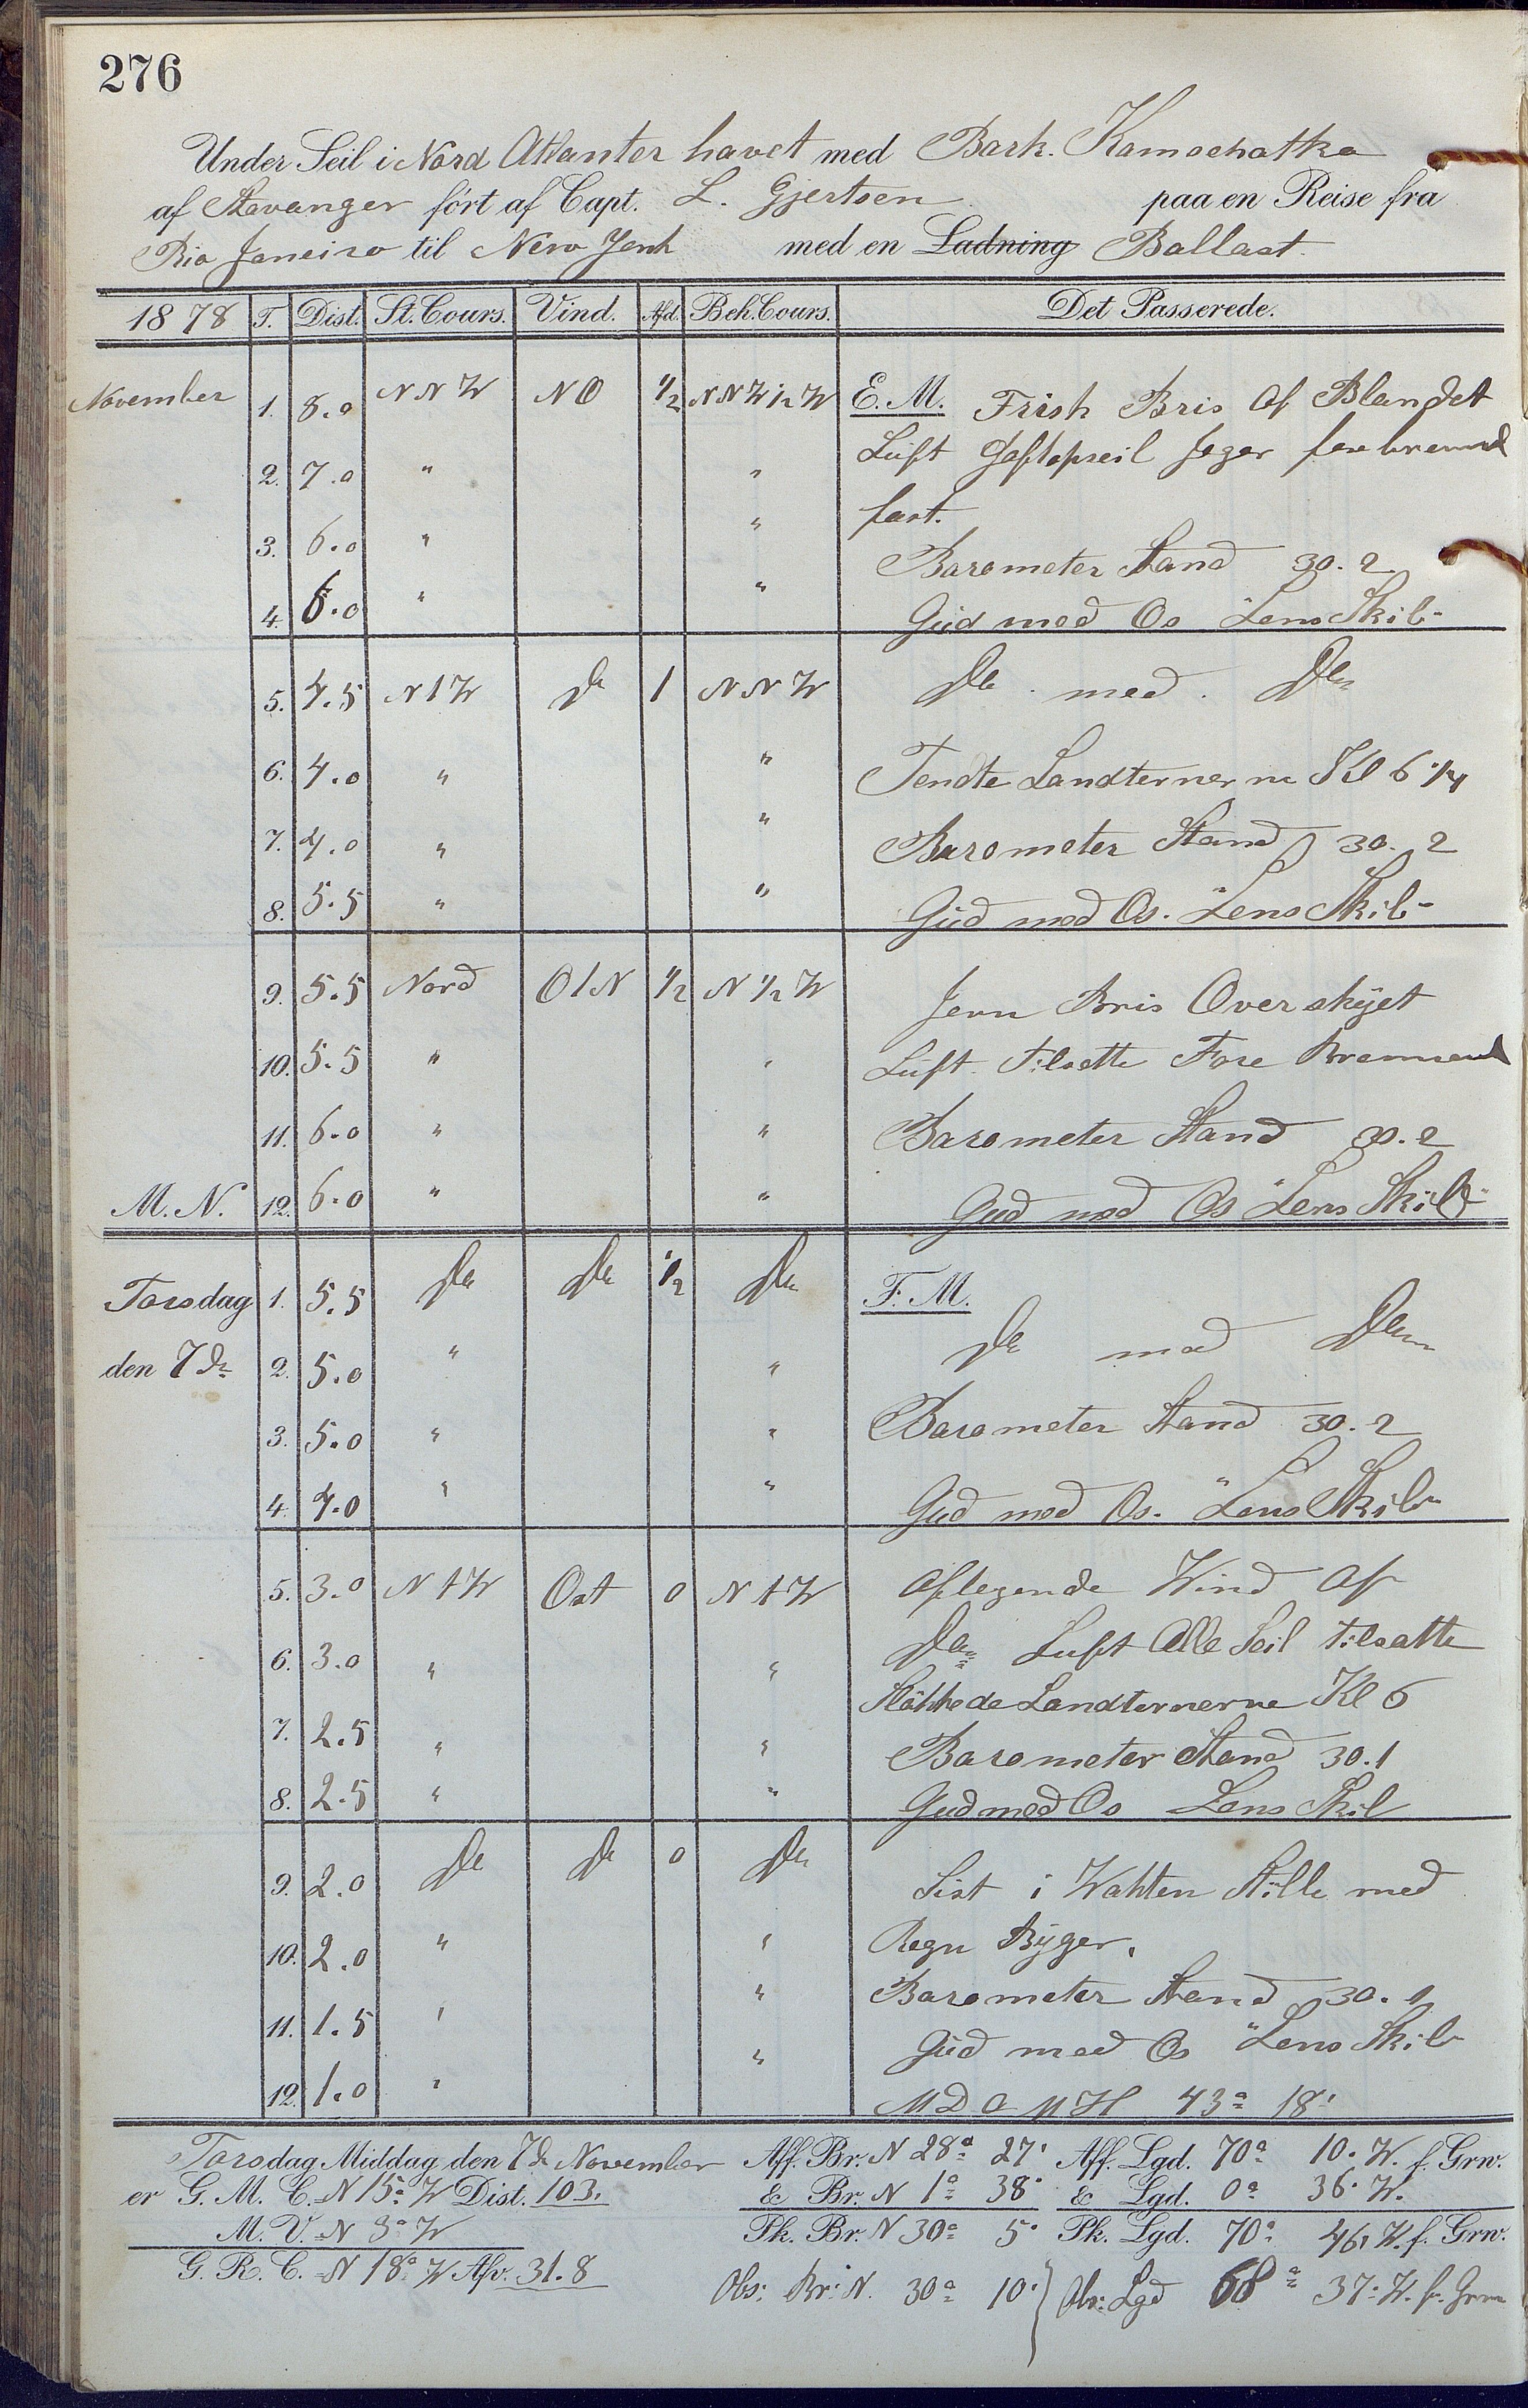 276
Under Seil i Nord Atlanter havet med Bark. Kamschatka
af Stavanger ført af Capt. L. Gjertsen paa en Reise fra
Rio Janeiro til New York med en Ladning Ballast.
1878 T. Dist. St. Cours. Vind. Afd. Beh. Cours. Det Passerede.
November 1. 8.0 N N W N O 1/2 N N W 1/2 W E. M. Frisk Bris Af Blandet
Luft Jager
2. 7.0 " "
fast.
3. 6.0 " "
Barometer Stand 30.2
4. 6.0 " "
Gud med Os Lens Skib-
5. 4.5 N 1 W Do 1 N N W Do med Do
6. 4.0 " " Tendte Landternerne Kl 6 1/4
7. 4.0 " " Barometer Stand 30.2
8. 5.5 " " Gud med Os. Lens Skib-
9. 5.5 Nord O 1 N 1/2 N 1/2 W Jevn Bris Over skyet
10. 5.5 " " Luft. tilsatte Fore
11. 6.0 " " Barometer Stand 30.2
M. N. 12. 6.0 " " Gud med Os Lens Skib
Torsdag 1. 5.5 Do Do 1/2 Do F. M.
den 7de 2. 5.0 " " Do med Do
3. 5.0 " " Barometer Stand 30.2
4. 4.0 " " Gud med Os. Lens Skib
5. 3.0 N 1 W Ost 0 N 1 W Aflegende Wind Af
6. 3.0 " " Do Luft Alle Seil tilsatte
Slökkede Landternerne Kl 6
7. 2.5 " "
Barometer Stand 30.1
8. 2.5 " "
Gud med Os Lens Skib
9. 2.0 Do Do 0 Do Sist i Wahten Stille med
10. 2.0 " " Regn Byger.
Barometer Stand 30.1
11. 1.5 " "
Gud med Os Lens Skib
12. 1.0 " "
M D O M H 43° 18'
Torsdag Middag den 7de November Aff. Br. N 28° 27' Aff. Lgd. 70° 10' W. f. Grw.
er G. M. C. N 15° W Dist. 103. & Br. N 1° 38' & Lgd. 0° 36' W.
M. V. N 3° W Pk. Br. N 30° 5' Pk. Lgd. 70° 46' W. f. Grw.
G. R. C. N 18° W Afv. 31.8
Obs: Br: N. 30° 10' Obs: Lgd 68° 37' W. f. Grw